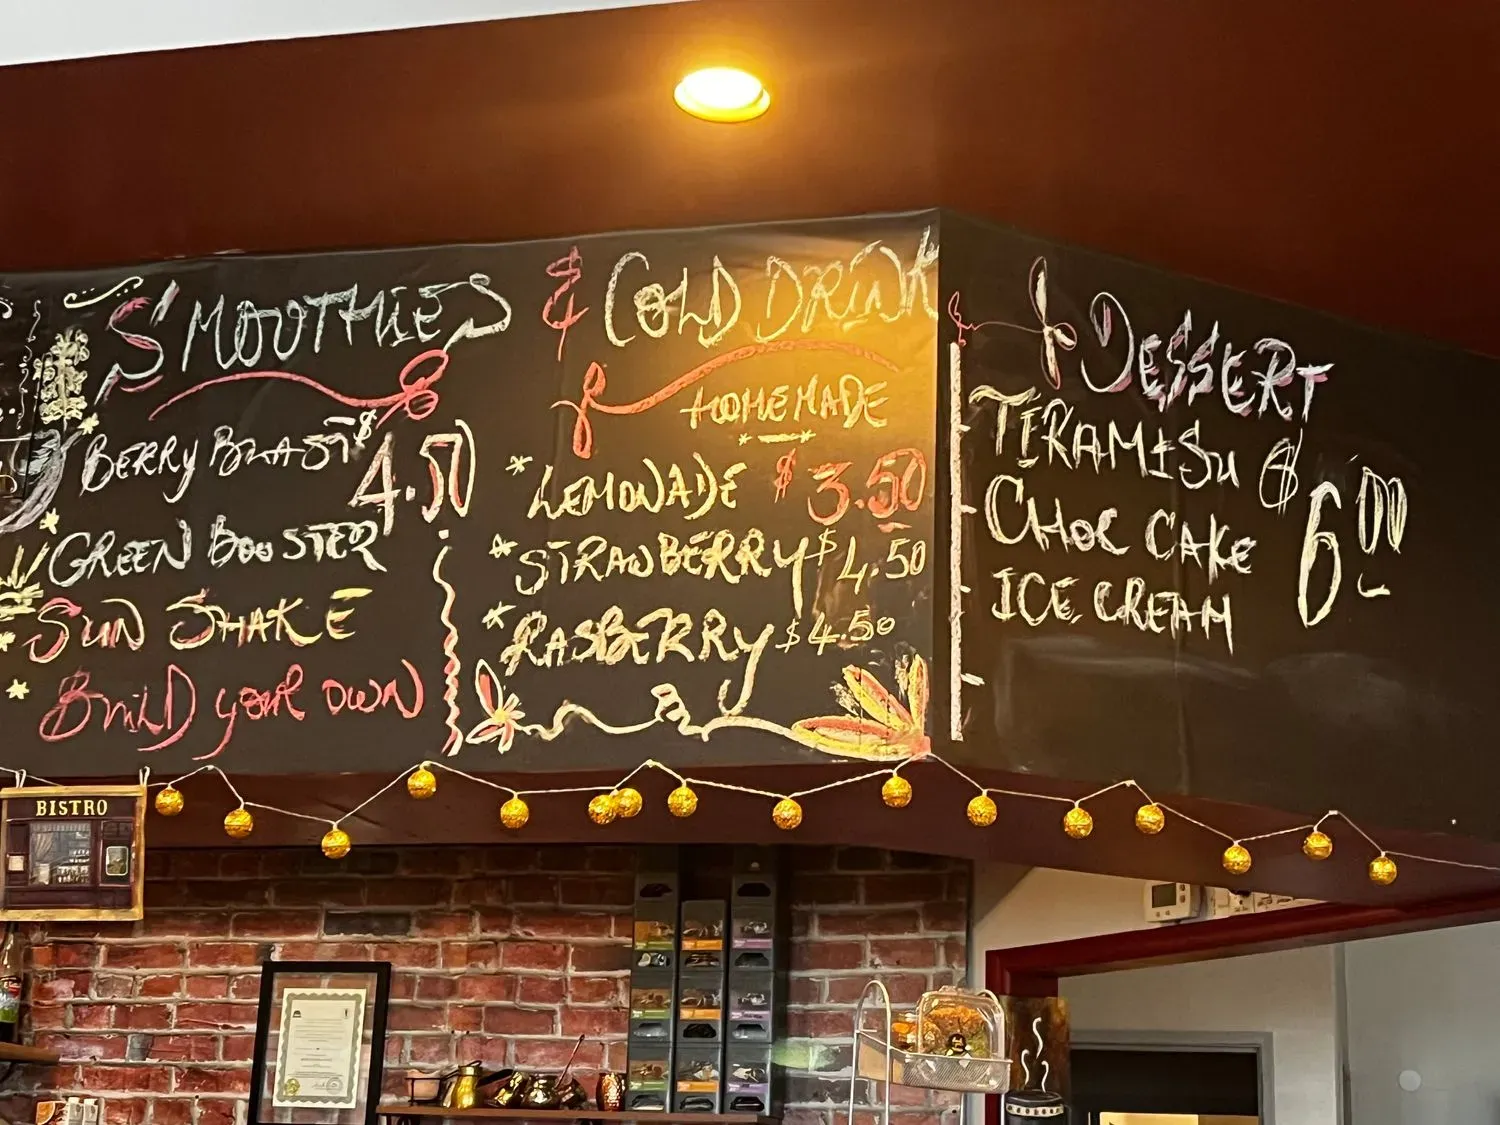 SMOOTHIES & COLD DRINK
BERRY BLAST $4.50
GREEN BOOSTER
SUN SHAKE
BUILD YOUR OWN
HOMEMADE
LEMONADE $3.50
STRAWBERRY $4.50
RASBERRY $4.50
DESSERT
TIRAMISU $
CHOC CAKE 6.00
ICE CREAM
BISTRO